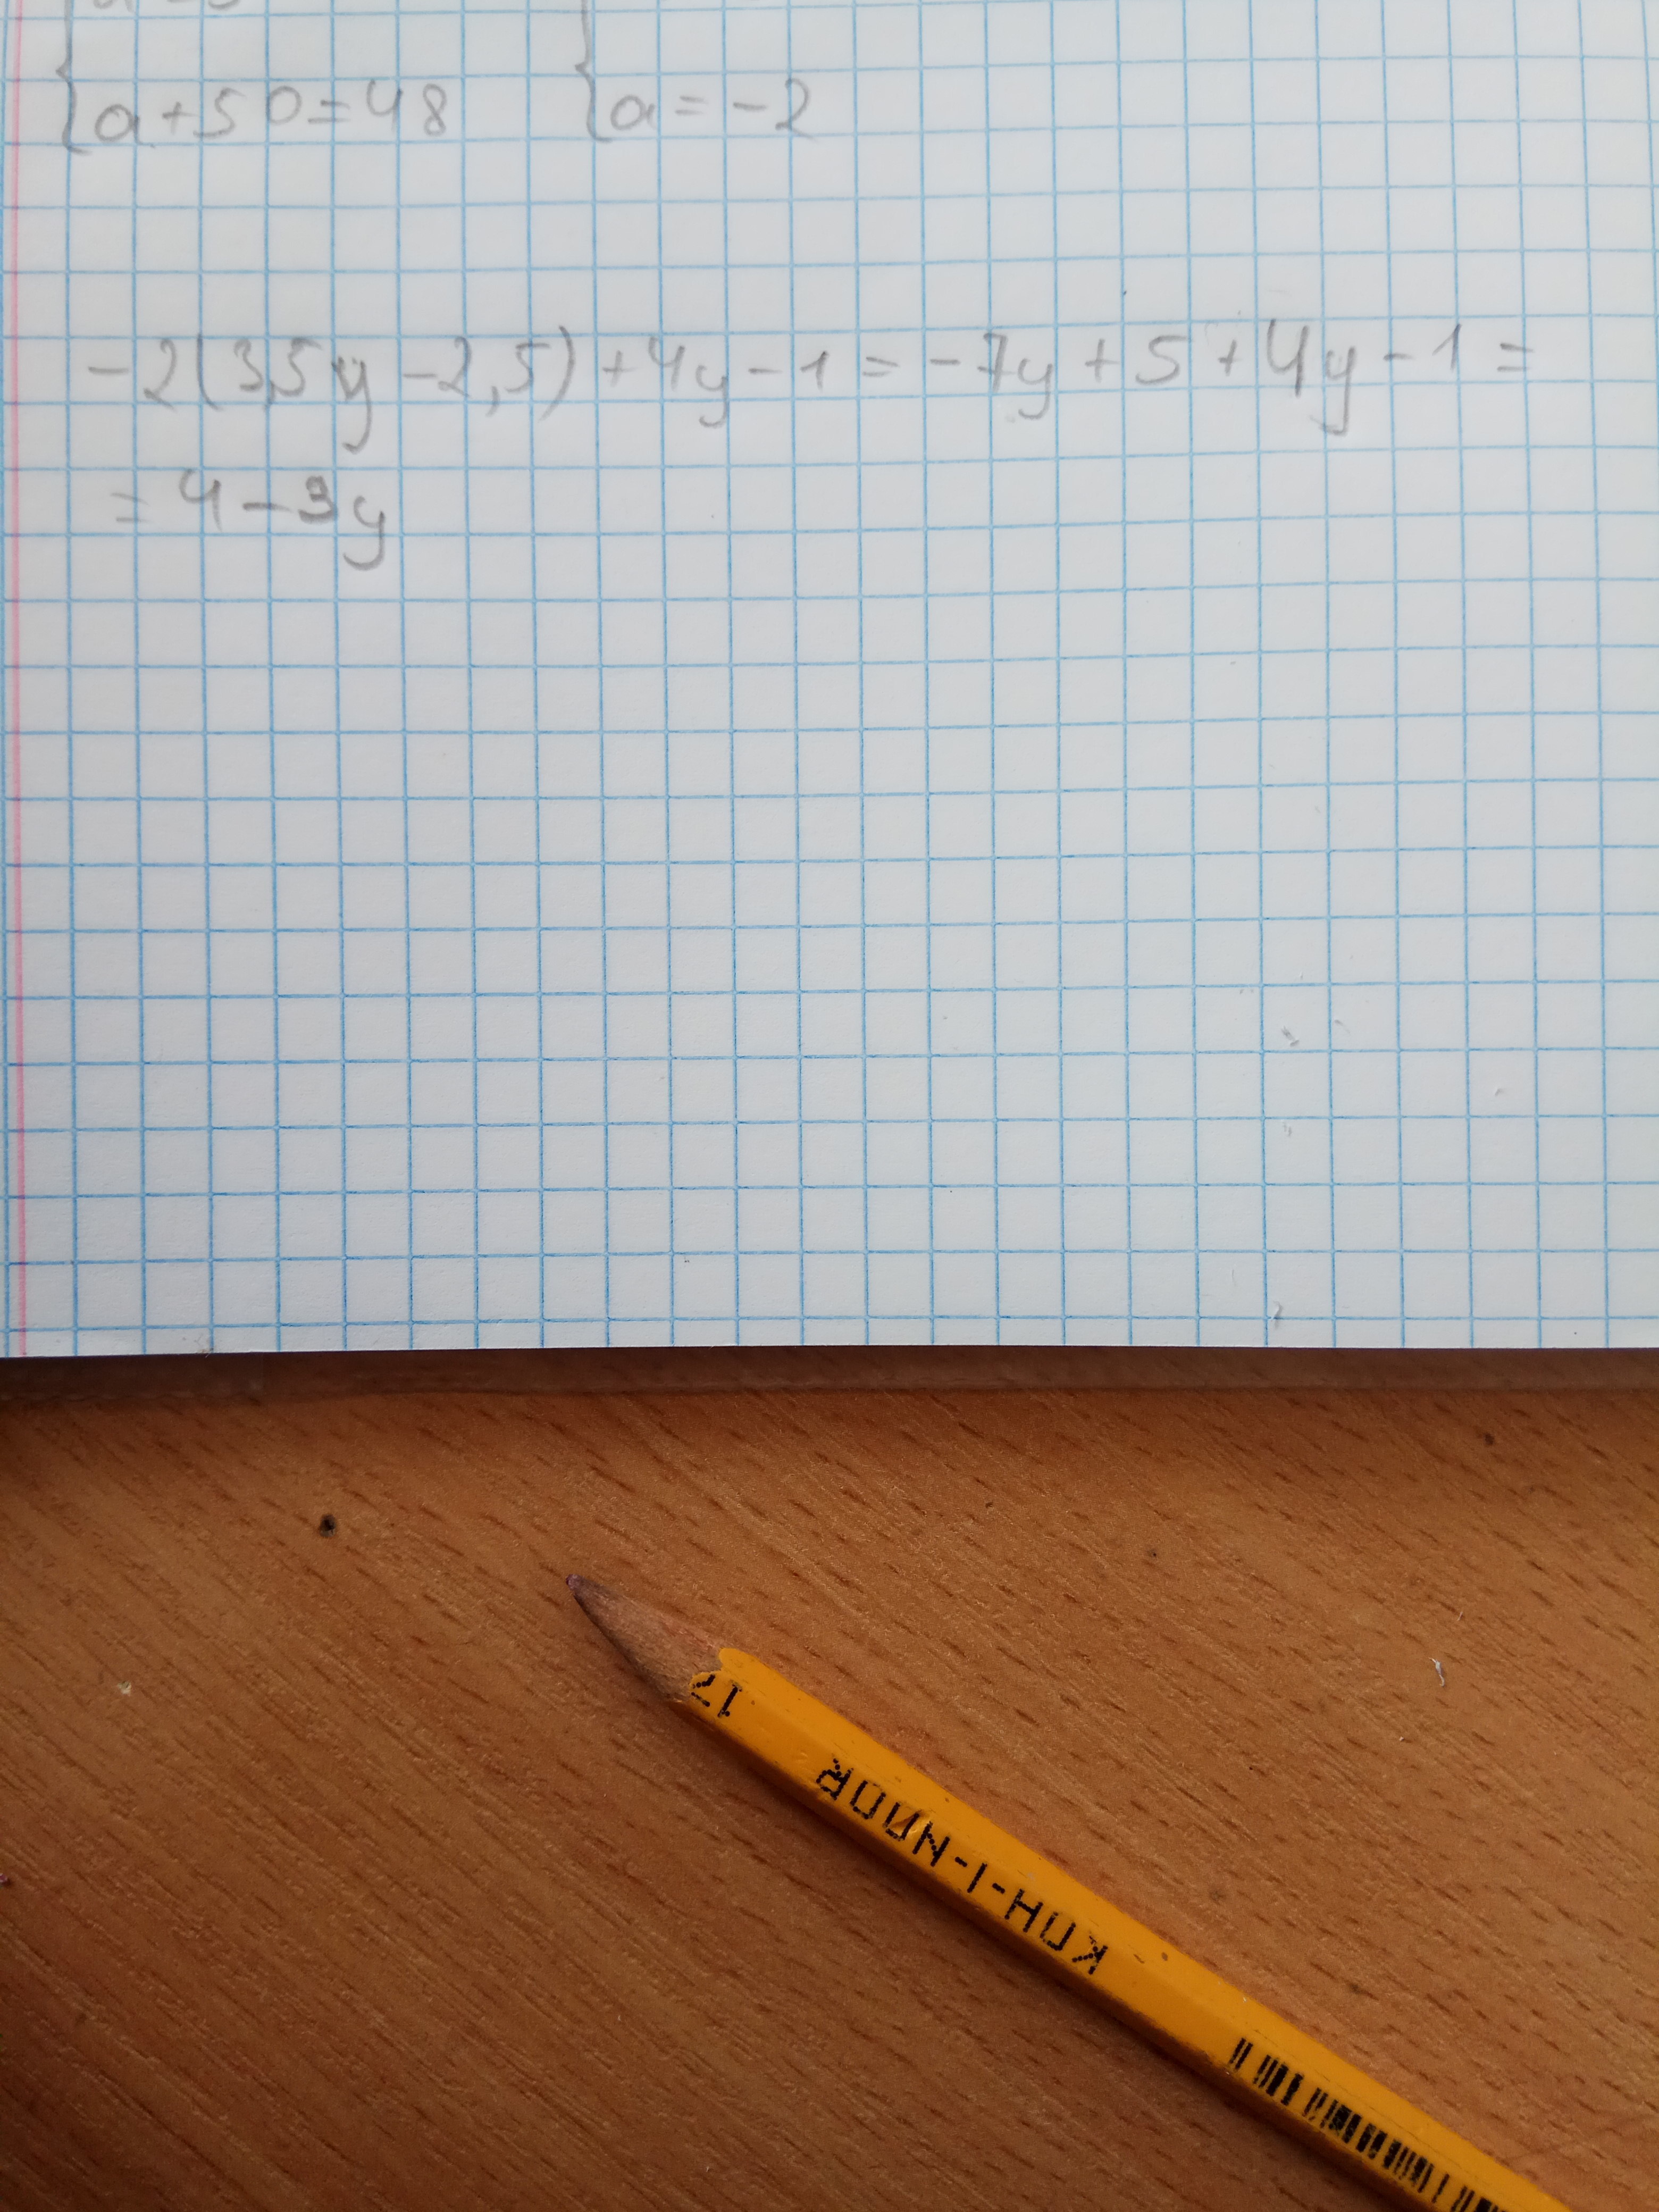 a + 50 = 48
a = -2
-2(3,5y - 2,5) + 4y - 1 = -7y + 5 + 4y - 1 =
= 4 - 3y
KOH-I-NOOR
17